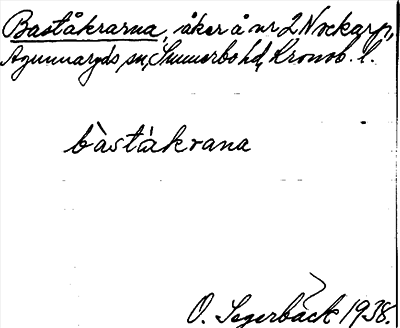 Baståkrarna, åker å nr 2 Nockarp,
Agunnaryds sn, Sunnerbo hd, Kronob. l.
bàståkrana
O. Segerbäck 1938.